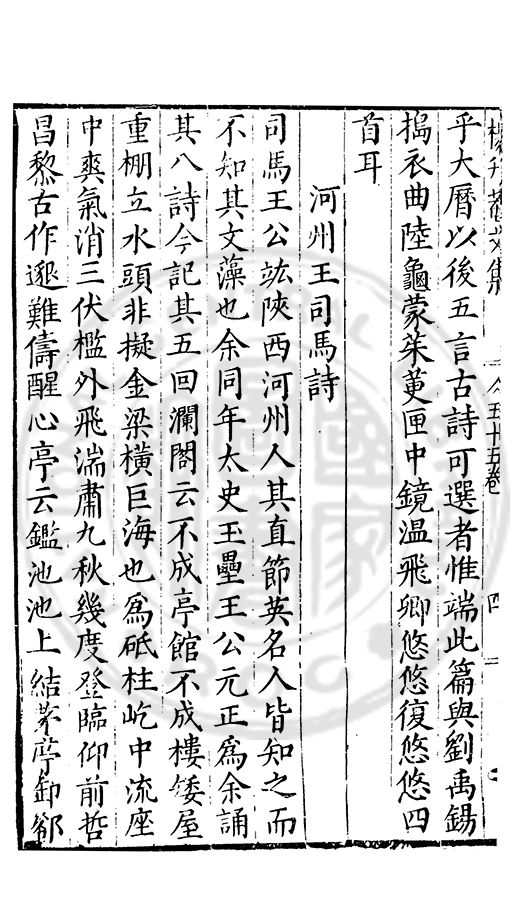 乎大曆以後五言古詩可選者惟端此篇與劉禹錫
搗衣曲陸龜蒙茱萸匣中鏡溫飛卿悠悠復悠悠四
首耳
河州王司馬詩
司馬王公竑陝西河州人其直節英名人皆知之而
不知其文藻也余同年太史玉壘王公元正爲余誦
其八詩今記其五回瀾閣云不成亭館不成樓矮屋
重棚立水頭非擬金梁橫巨海也爲砥柱屹中流座
中爽氣消三伏檻外飛湍肅九秋幾度登臨仰前哲
昌黎古作邈難儔醒心亭云鑑池池上結茅亭卸郤
五十五卷
四